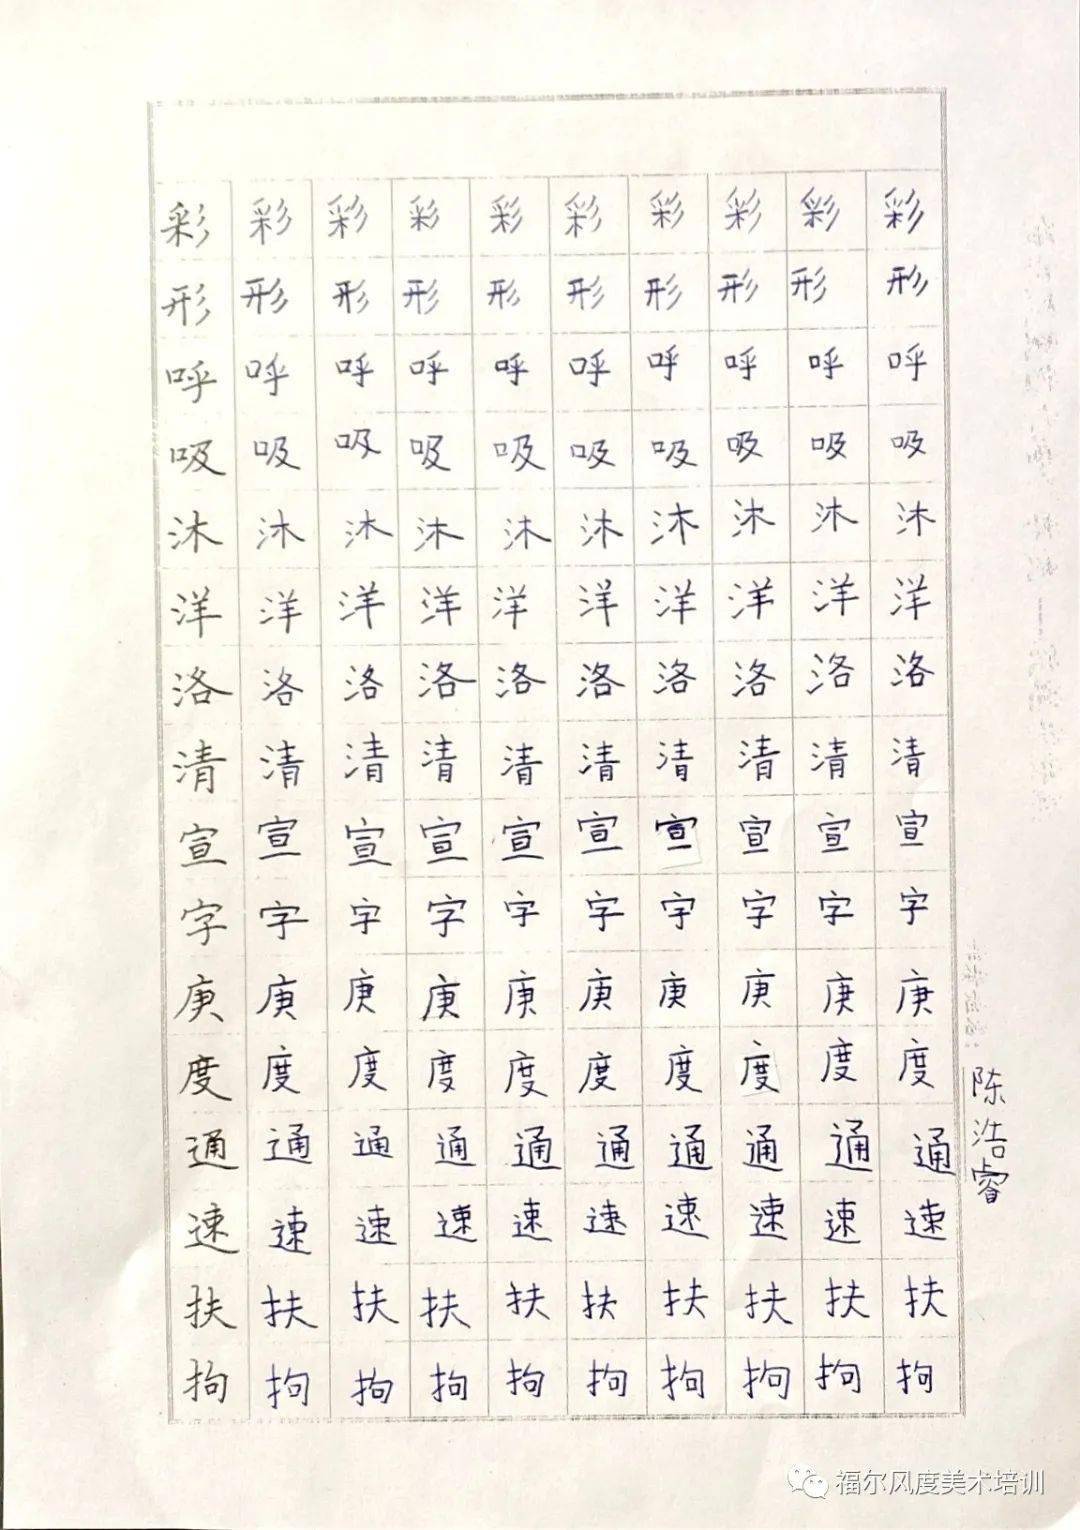 彩彩彩彩彩彩彩彩彩彩
形形形形形形形形形形
呼呼呼呼呼呼呼呼呼呼
吸吸吸吸吸吸吸吸吸吸
沐沐沐沐沐沐沐沐沐沐
洋洋洋洋洋洋洋洋洋洋
洛洛洛洛洛洛洛洛洛洛
清清清清清清清清清清
宣宣宣宣宣宣宣宣宣宣
字字字字字字字字字字
庚庚庚庚庚庚庚庚庚庚
度度度度度度度度度度
通通通通通通通通通通
速速速速速速速速速速
扶扶扶扶扶扶扶扶扶扶
拘拘拘拘拘拘拘拘拘拘
陈浩睿
福尔风度美术培训